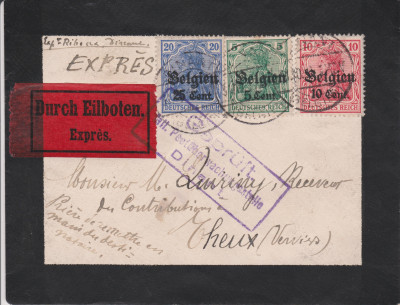 EXPRÈS
20 20
Belgien
25 Cent.
DEUTSCHES REICH
5 5
Belgien
5 Cent.
DEUTSCHES REICH
10 10
Belgien
10 Cent.
DEUTSCHES REICH
Durch Eilboten.
Exprès.
Geprüft
Monsieur M. Receveur
des Contributions
Theux (Verviers)
Prière de remettre en
main du desti-
nataire.